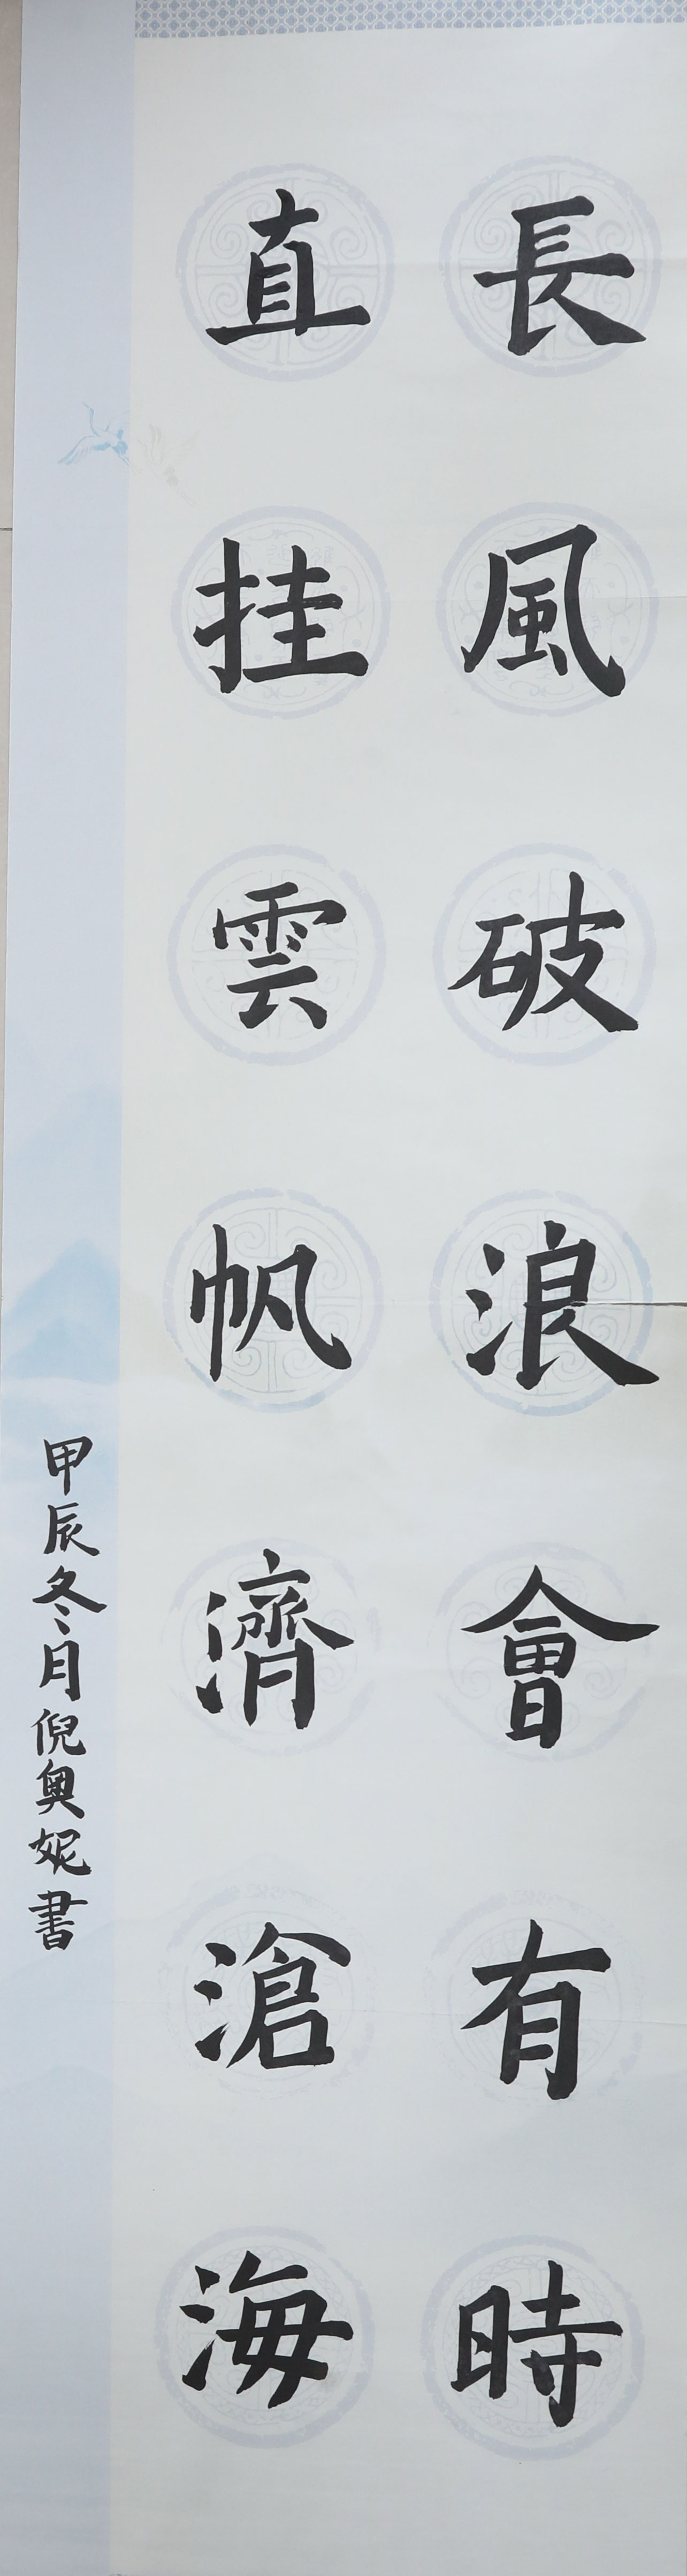 長風破浪會有時
直挂雲帆濟滄海
甲辰冬月倪奥妮書